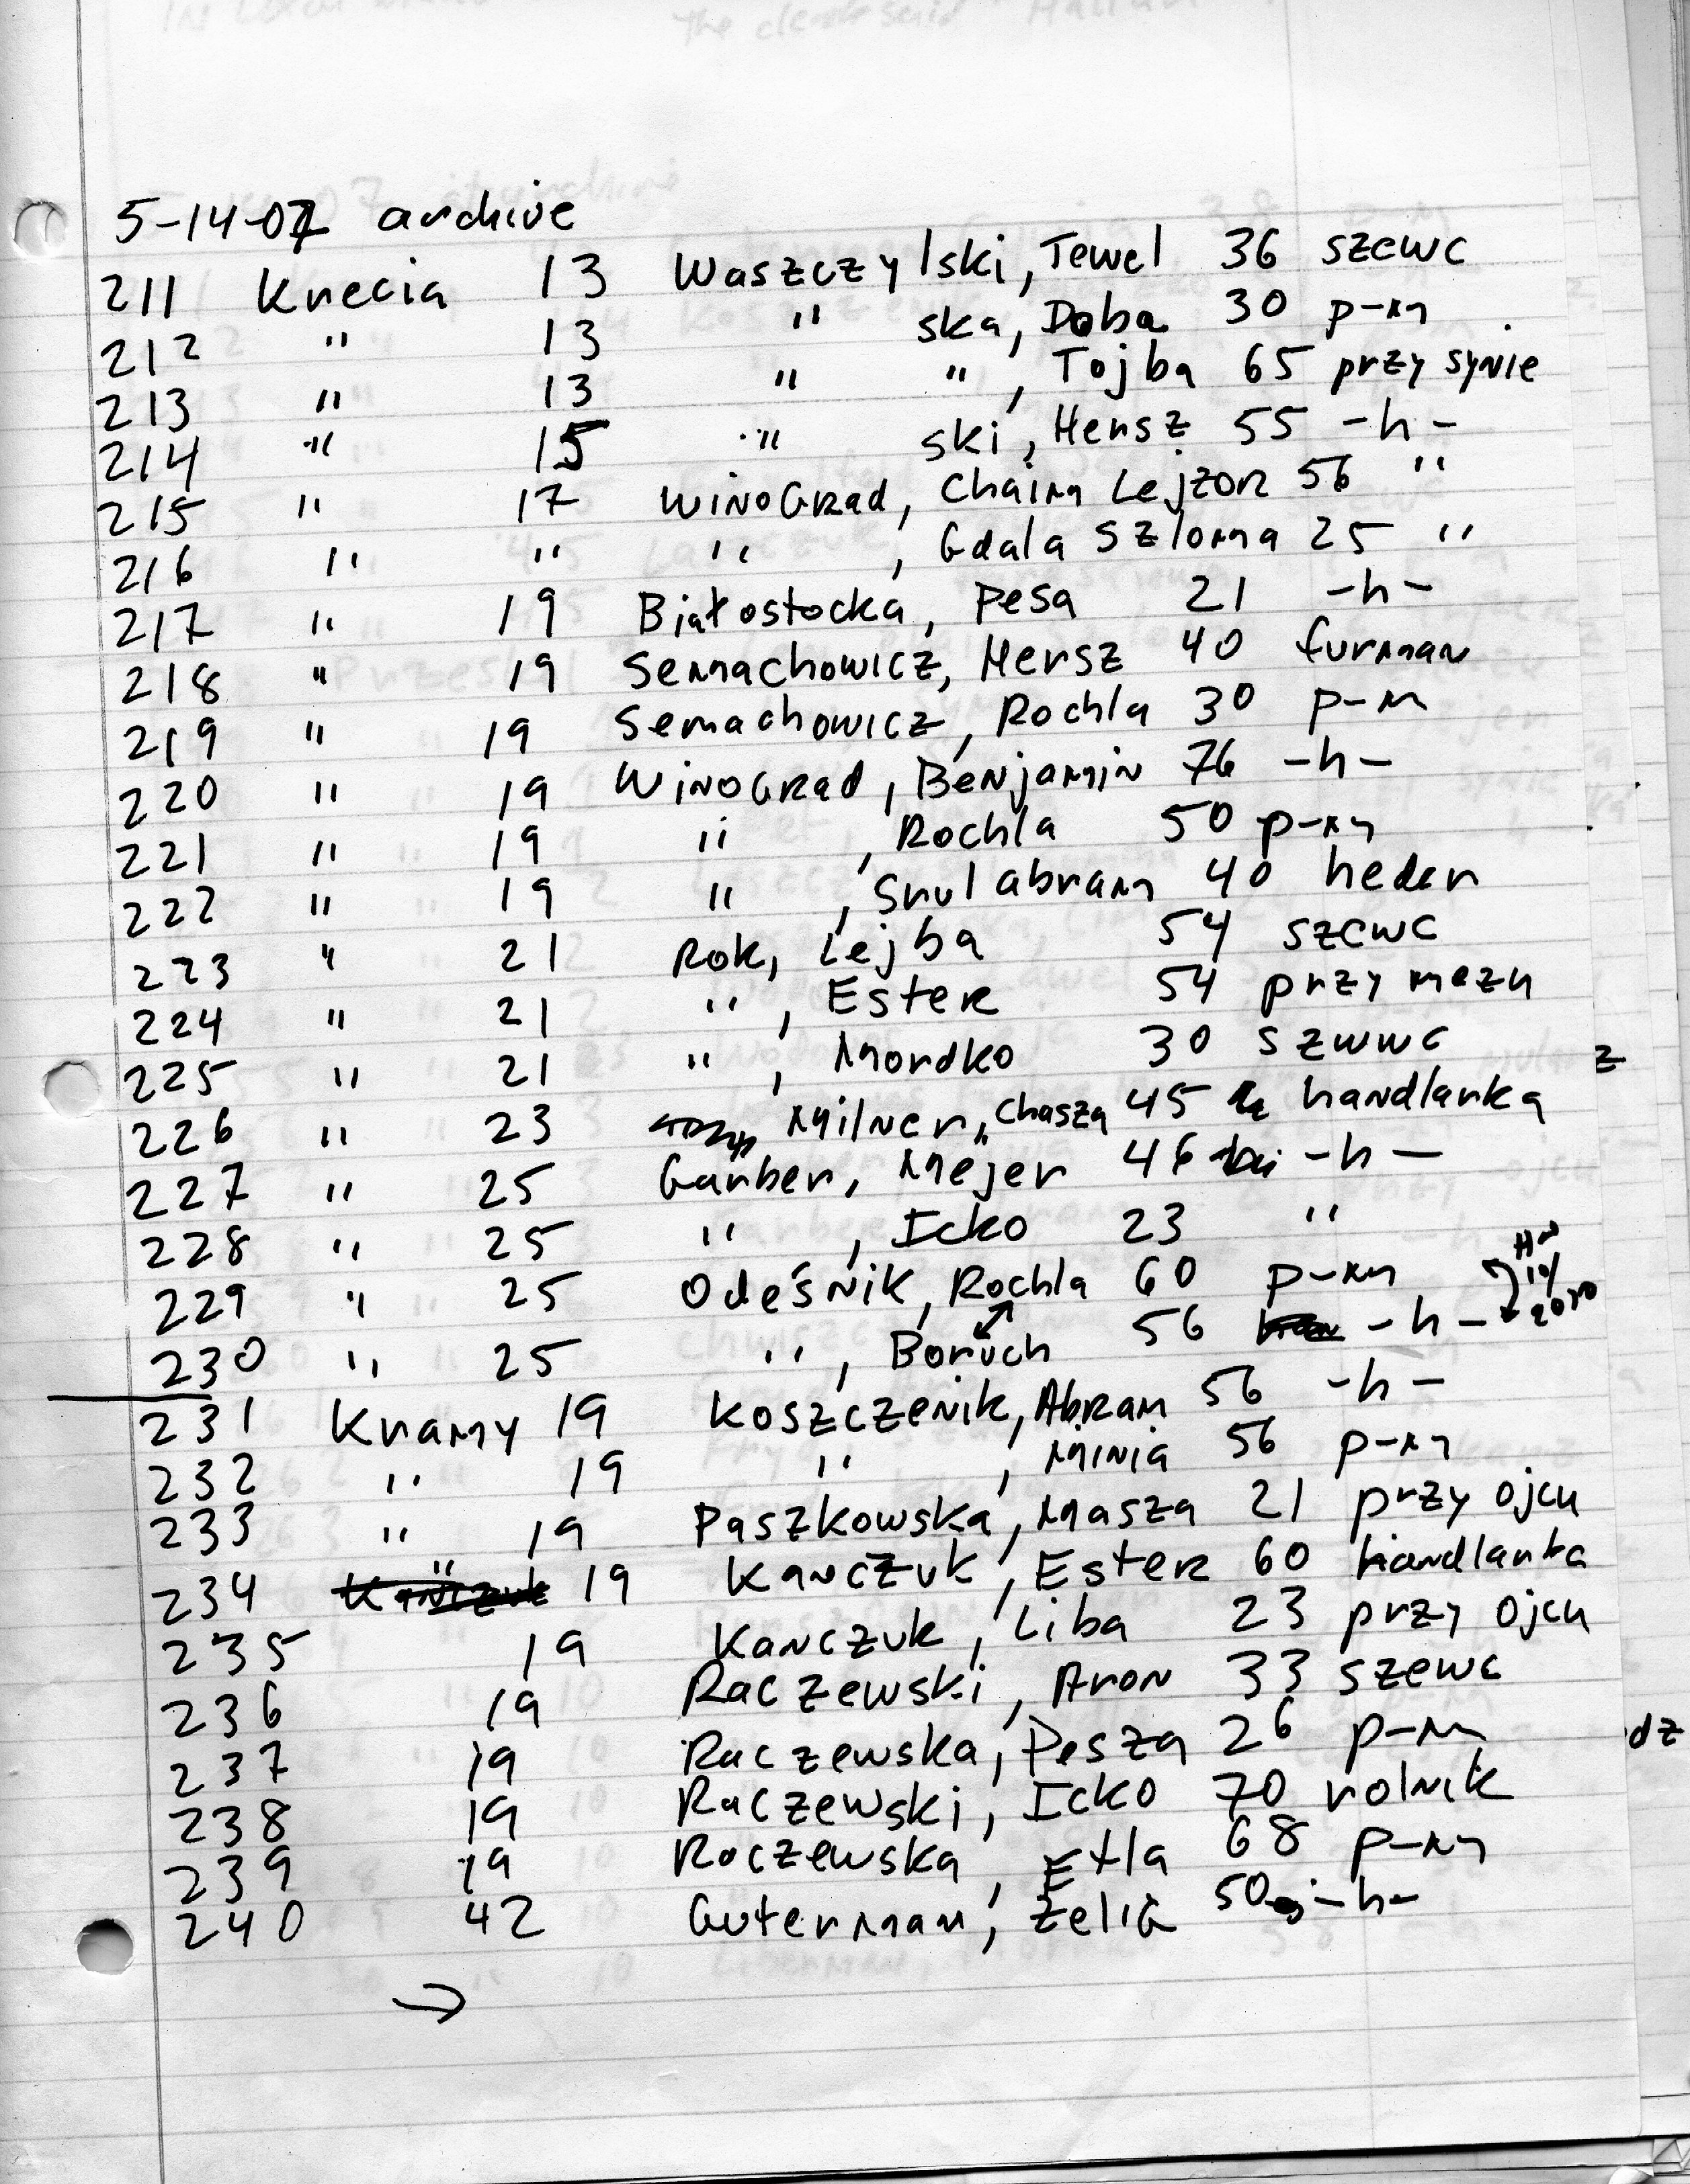 5-14-07 archive
211 Krecia 13 Waszczylski, Tewel 36 szewc
212 " 13 " ska, Doba 30 p-m
213 " 13 " " , Tojba 65 przy synie
214 " 15 " ski, Hersz 55 -h-
215 " 17 Winograd, Chaim Lejzor 56 "
216 " " " , Gdala Szloma 25 "
217 " 19 Białostocka, Pesa 21 -h-
218 " 19 Semachowicz, Hersz 40 furman
219 " 19 Semachowicz, Rochla 30 p-m
220 " 19 Winograd, Benjamin 76 -h-
221 " 19 " , Rochla 50 p-m
222 " 19 " , Srul abram 40 heder
223 " 21 Rok, Lejba 54 szewc
224 " 21 " , Ester 54 przy mezu
225 " 21 " , Mordko 30 szwwc
226 " 23 Milner, Chasza 45 handlarka
227 " 25 Garber, Mejer 46 -h-
228 " 25 " , Icko 23 "
229 " 25 Odeśnik, Rochla 60 p-m
230 " 25 " , Boruch 56 -h-
231 Kramy 19 Koszczenik, Abram 56 -h-
232 " 19 " , Minia 56 p-m
233 " 19 Paszkowska, Masza 21 przy ojcu
234 " 19 Kanczuk, Ester 60 handlarka
235 19 Kanczuk, Liba 23 przy ojcu
236 19 Raczewski, Aron 33 szewc
237 19 Raczewska, Pesza 26 p-m
238 19 Raczewski, Icko 70 rolnik
239 19 Raczewska, Etla 68 p-m
240 42 Guterman, Zelig 50 -h-
→